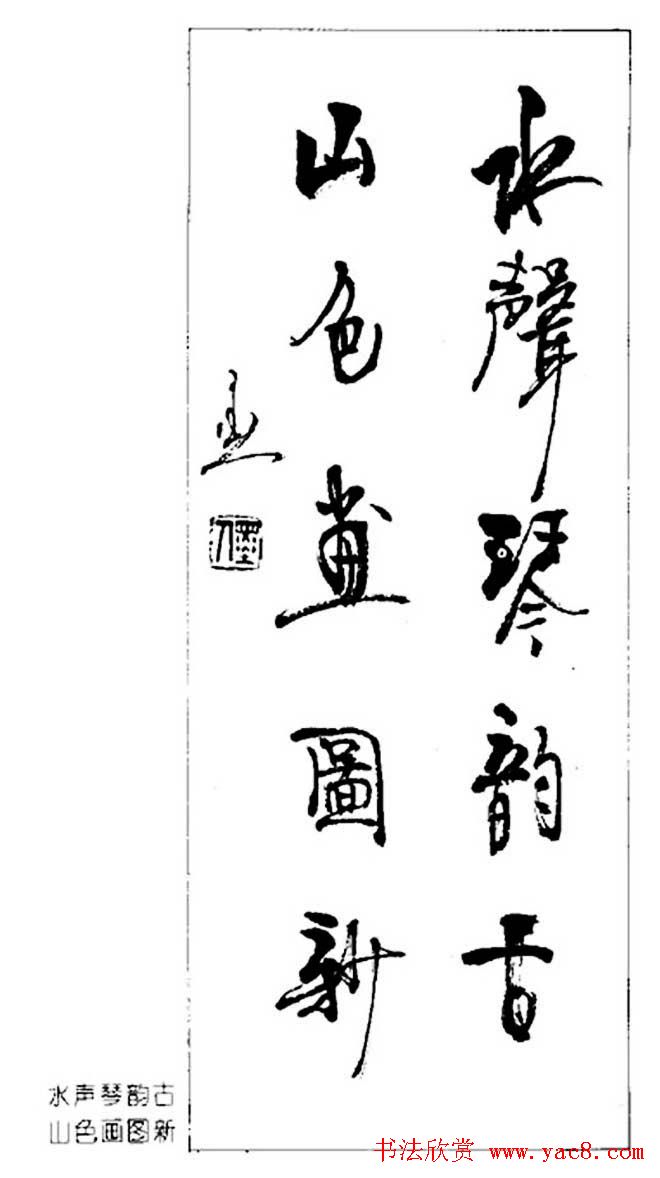 水聲琴韵古
山色畫圖新
水声琴韵古
山色画图新
书法欣赏 www.yac8.com